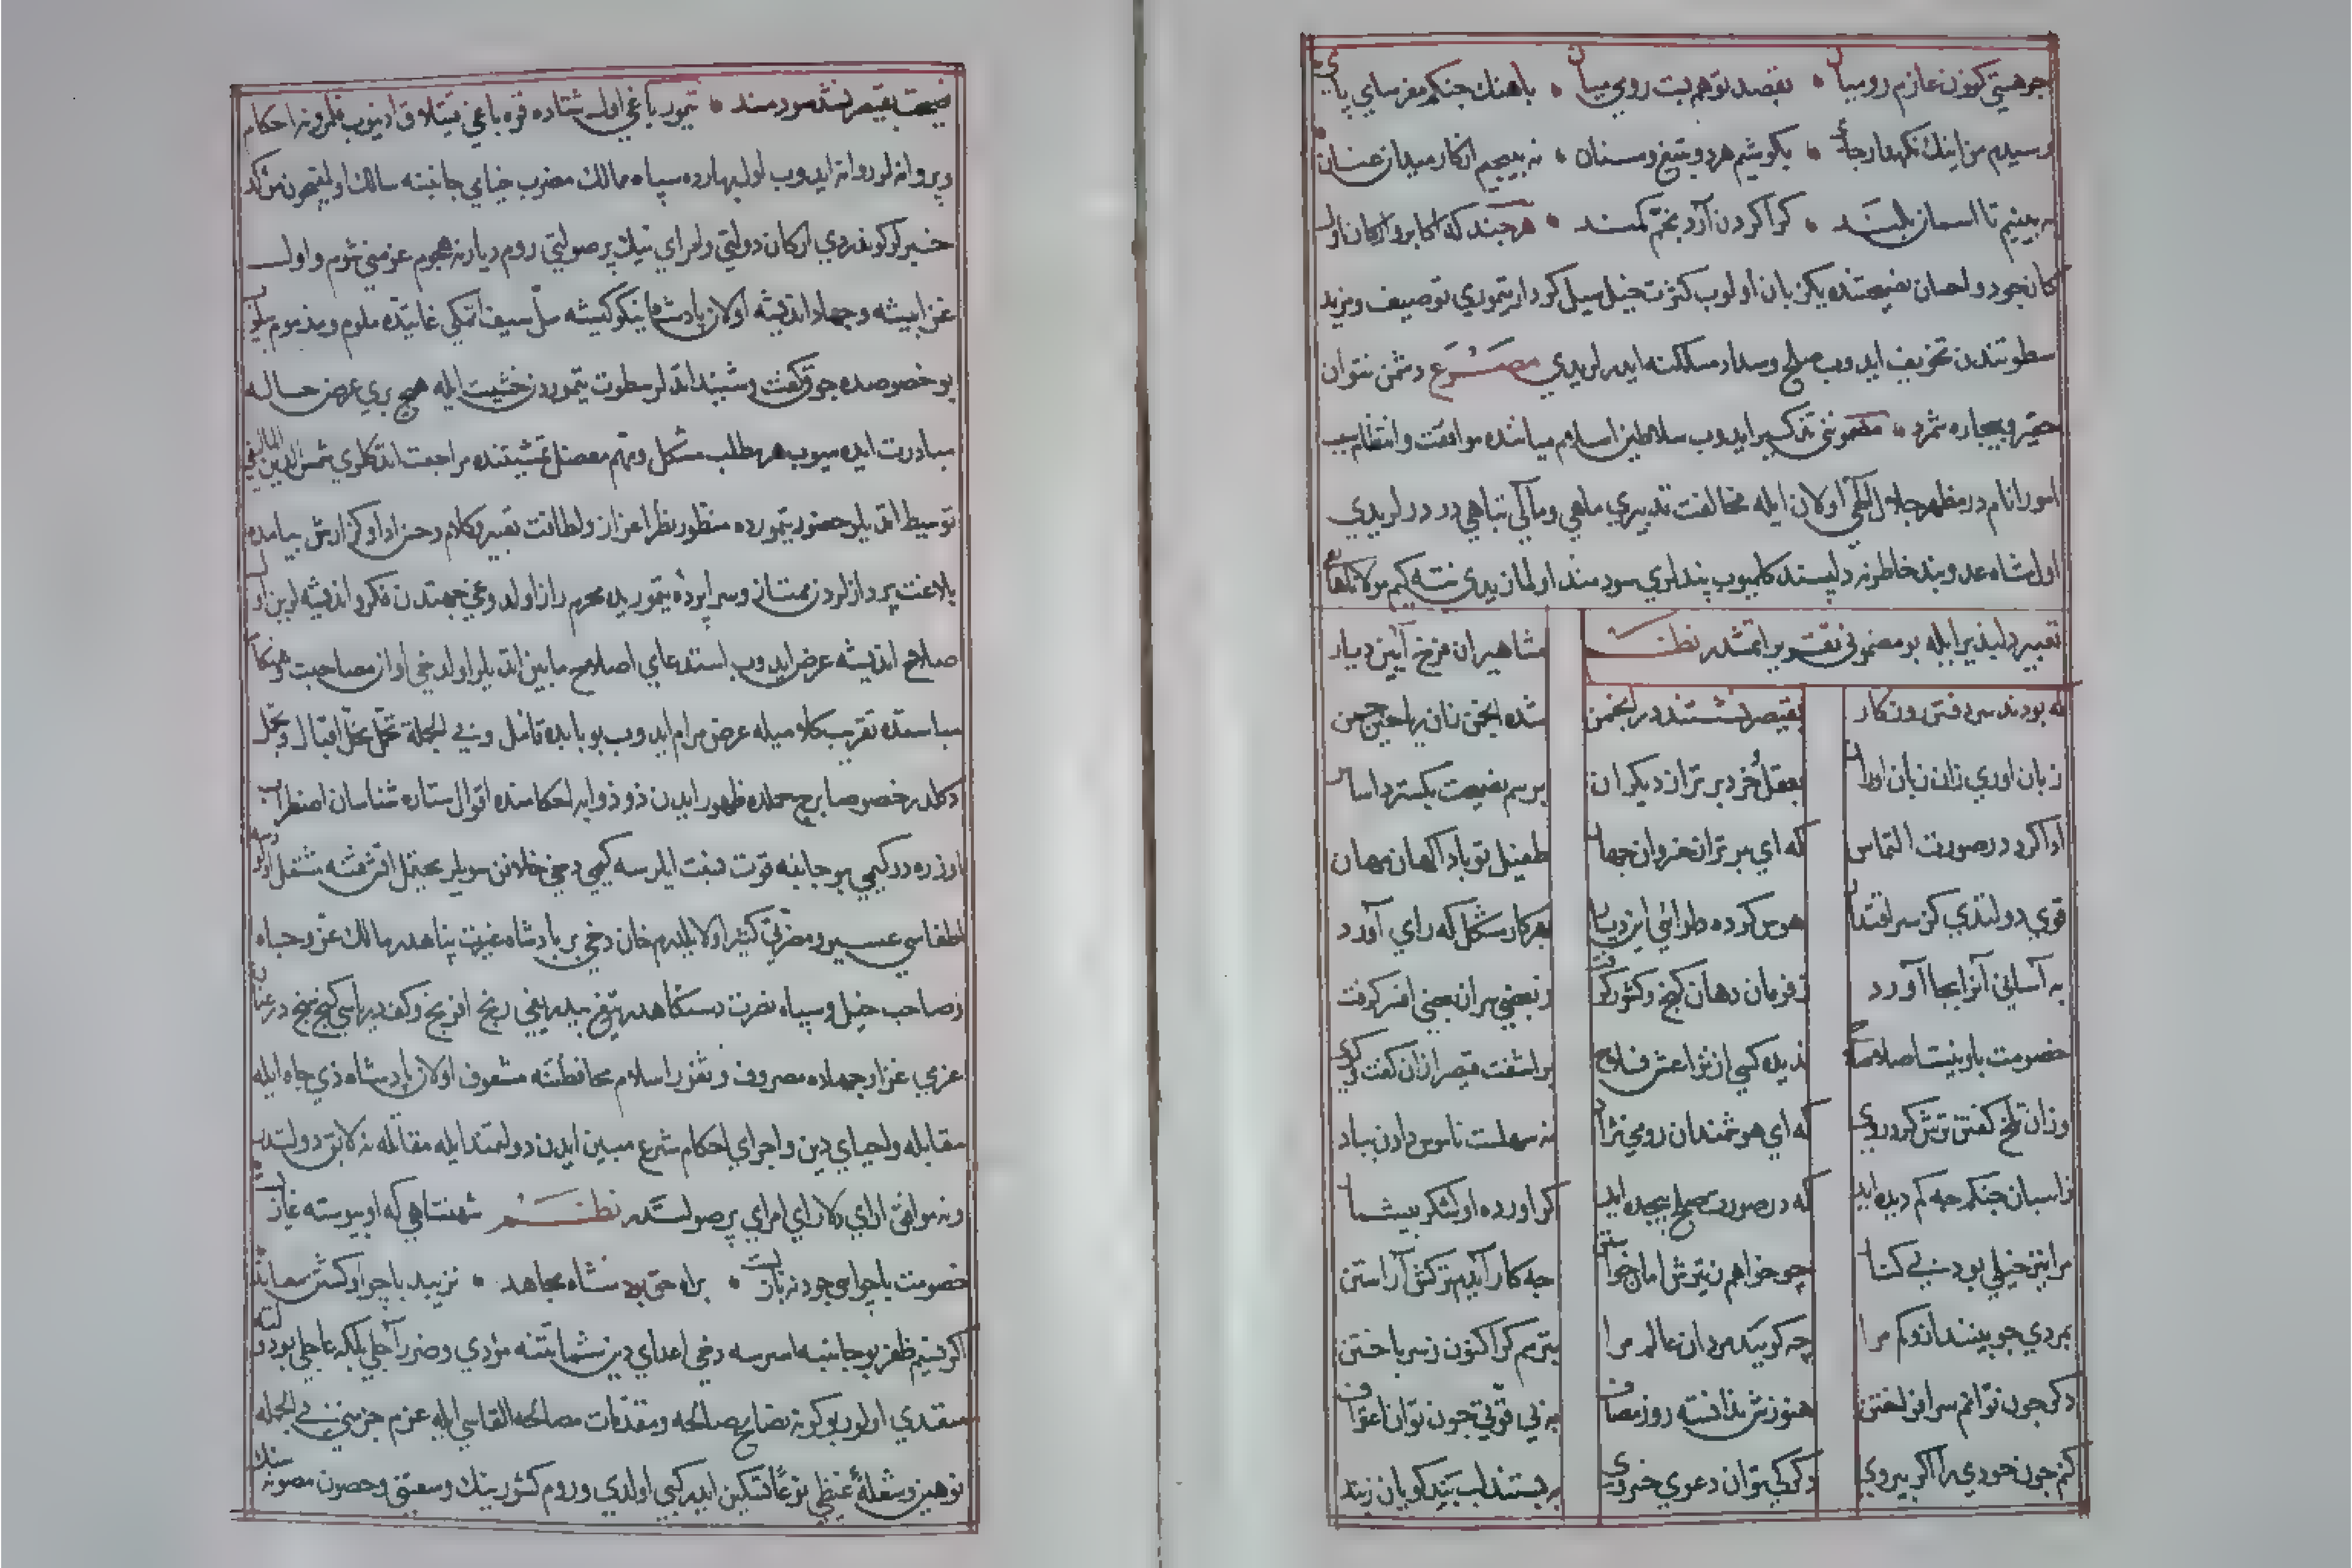 چو هستی کنون عازم رومیان • بقصد تو هم بست رومی میان • باهنك جنكم مفرسای پای
رسیدم من اینك نكهدار جای • بكوشیم هر دو بتیغ وسنان • نه پیچیم از كار میدان عنان
به بینیم تا اسمان بلند • كرا كردن آرد بخم كمند • هرچند كه اكابر واركان اول
كان جود واحسان نصیحتنده یكزبان اولوب كثرت خیل سیل كردار تیموری توصیف ومزید
سطوتندن تخویف ایدوب صلح وسداد مسلكنه ایدرلریدی مصرع دشمن نتوان
حقیر وبیچاره شمرد • مضمونی تذكیر ایدوب سلاطین اسلام میاننده موافقت وانتظام سبب
امور انام در مظهر جلال الهی اولان ایله مخالفت تدبیری ماهی ومآلی تباهی در درلریدی
اول شاه عدوبند خاطرنه دلپسند كلمیوب پندلری سودمند اولمازیدی نته كیم مولانا هاتفی
تعبیر دلپذیر ایله بو مضمونی تقریر ایتمشدر نظم
مشاهیر ان فرخ آیین دیار
كه بودند سردفتر روزكار
بقیصر نشستند در انجمن
شده انجمن زان ریاحین چمن
زبان اوری زان زبان اوران
بعقل خرد برتر از دیكران
برسم نصیحت بكسترد اساس
ادا كرد در صورت التماس
كه ای برتر از خسروان جهان
طفیل تو باد آكهان مهان
قوی دولتدی كز سر افتد
هوس كرده طرائی این دیار
بهر كار مشكل كه رای آورد
به آسانی آنرا بجا آورد
ز فرمان دهان كنج وكشور كرفت
وبعضی سران بعضی افسر كرفت
خصومت باو نیست اصلا صلاح
ندیده كسی از نزاعش فلاح
براشفت قیصر ازان كفت وكوی
وزان تلخ كفتن ترش كرد روی
كه ای هوشمندان رومی نژاد
نه سهلست ناموس دادن بباد
ز اسبان جنكم چه كم دیده اید
كه در صورت صلح پیچیده اید
كر اورده او لشكر بیشمار
مرا نیز خیلی بود بی كنار
چو خواهم ز ترش امان خواستن
چه كار آیدم تركش آراستن
بمردی چو بینند ازو كم مرا
چه كویند مردان عالم مرا
بترسم كر اكنون ز سر باختن
دكر چون توانم سر افراختن
هنوزش نداشته روز مصاف
به بی قوتی چون توان اعتراف
كنم چون خودی را اكر پیروی
دكر كی توان دعوی خسروی
به بستند لب پند كویان ز پند
نصیحت بقیصر نشد سودمند • تیمور یاغی اول شتاده قره باغی قشلاق ادینوب قلمرونه احكام
وپروانه لر روانه ایدوب اول بهارده سپاه ممالك مضرب خیامی جانبنه سالك اولیجق
خبرلر كوندردی اركان دولتی وامرای نیك پر صولتی روم دیارنه هجوم عزمنی شوم واول
غزا پیشه وجهاد اندیشه اولان پادشاه نیكو كیشه سل سیف اتمكی غایتده ملوم ومذموم بیلور
بو خصوصده چوق كفت وشنید اتدیلر سطوت تیموردن خشیت ایله هیچ بری عرض حاله
مبادرت ایده میوب هر مطلب مشكل ومهم معضل تمشیتنده مراجعت اتدكلری شمس الدین المالیغی
توسیط اتدیلر حضور تیمورده منظور نظر اعزاز ولطافت تعبیر وكلام وحسن ادا وكزارش پیامده
بلاغت پردازلردن ممتاز وسراپرده تیموریده محرم راز اولدوغی جهتدن فكر واندیشه لرین اول
صلاح اندیشه عرض ایدوب استدعای اصلاح مابین اتدیلر اولدخی اوان مصاحبت وهنكام
مباسطه تقریب كلامیله عرض مرام ایدوب بو بابده تامل وفی الجمله تحمل مخل اقبال وتجمل
دكلدر خصوصا برج حملده ظهور ایدن ذو ذوابه احكامنده اقوال ستاره شناسان اضطراب
اوزره در كیمی بو جانبه قوت نسبت ایلرسه كیمی دخی خلافن سویلر محتمل اتش فتنه مشتعل اولوب
اطفاسی عسیر ومضرتی كثیر اولا یلدیرم خان دخی بر پادشاه غیرت پناهدر مالك عز وجاه
وصاحب خیل وسپاه نصرت دستكاهدر تیغ بیدریغی رنج افرنج وكف دریاسی كنج سنج در عنان
عزمی غزا وجهاده مصروف وثغور اسلام محافظتنه مشعوف اولان پادشاه ذی جاه ایله
مقابله واحیای دین واجرای احكام شرع مبین ایدن دولتمند ایله مقاتله نه لایق دولتدر
ونه موافق ارای دلارای امرای پر صولتدر نظم شهنشاهی كه او پیوسته غازیست
خصومت با چو اویی چو نه بازیست • براه حق بود شاه مجاهد • نزیبد با چو او كشتن معاند
اكر نسیم ظفر بو جانبنه اسرسه دخی اعدای دین شماتتنه مؤدی وضرر آجلی بلكه عاجلی بودولته
متعدی اولور بو كونه نصایح صالحه ومقدمات مصالحه القاسی ایله عزم جزمنی فی الجمله
توهین وشعله غیظی نوعا تسكین ایدر كبی اولدی وروم كشورینك وسعتی وحصون مصونه سنك